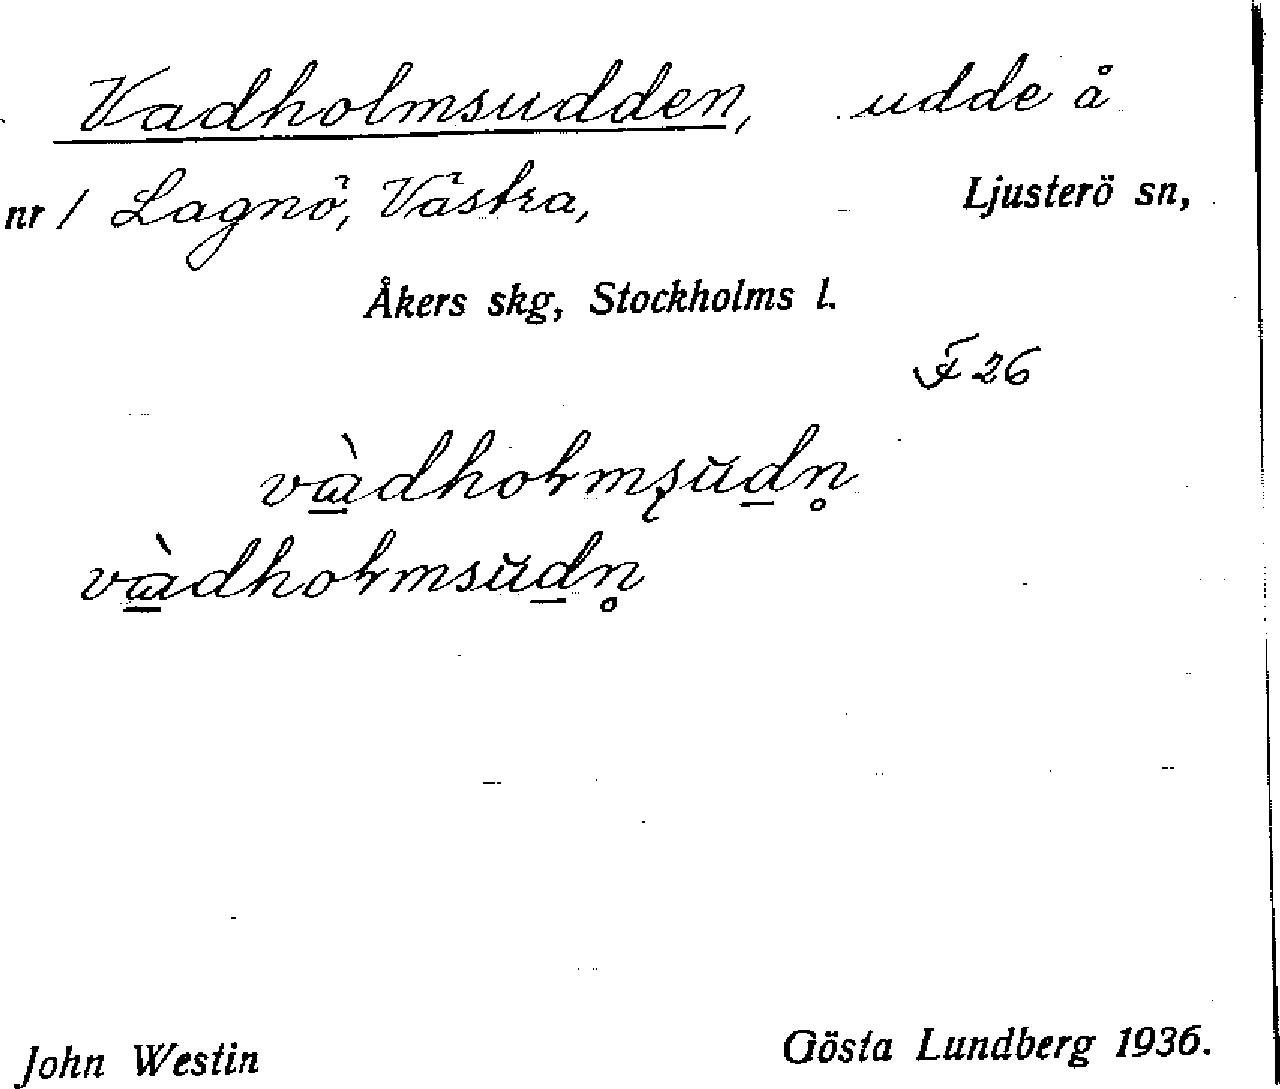 Vadholmsudden, udde å
nr 1 Lagnö, Västra, Ljusterö sn,
Åkers skg, Stockholms l.
F 26
John Westin Gösta Lundberg 1936.